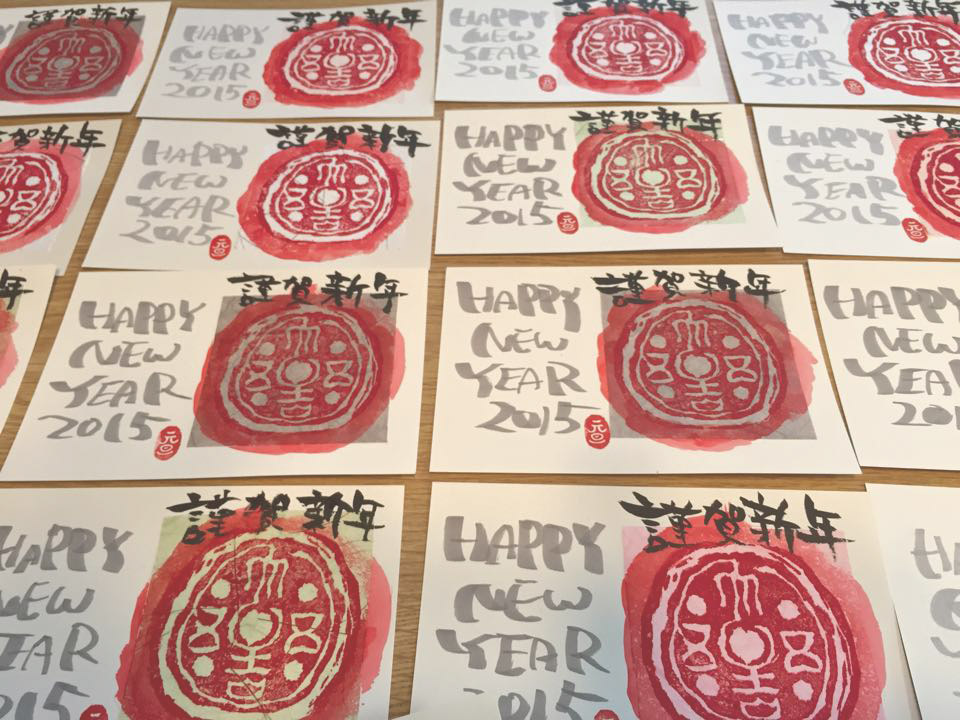 謹賀新年
謹賀新年
HAPPY
NEW
YEAR
2015
謹賀新年
HAPPY
NEW
YEAR
2015
謹賀新年
HAPPY
NEW
YEAR
2015
賀新年
謹賀新年
HAPPY
NEW
YEAR
2015
謹賀新年
HAPPY
NEW
YEAR
2015
謹賀
HAPPY
NEW
YEAR
2015
年
謹賀新年
HAPPY
NEW
YEAR
2015
謹賀新年
HAPPY
NEW
YEAR
2015
HAPPY
NEW
YEA
201
謹賀新年
HAPPY
NEW
YEAR
2015
謹賀新年
HAPPY
NEW
YEAR
2015
HA